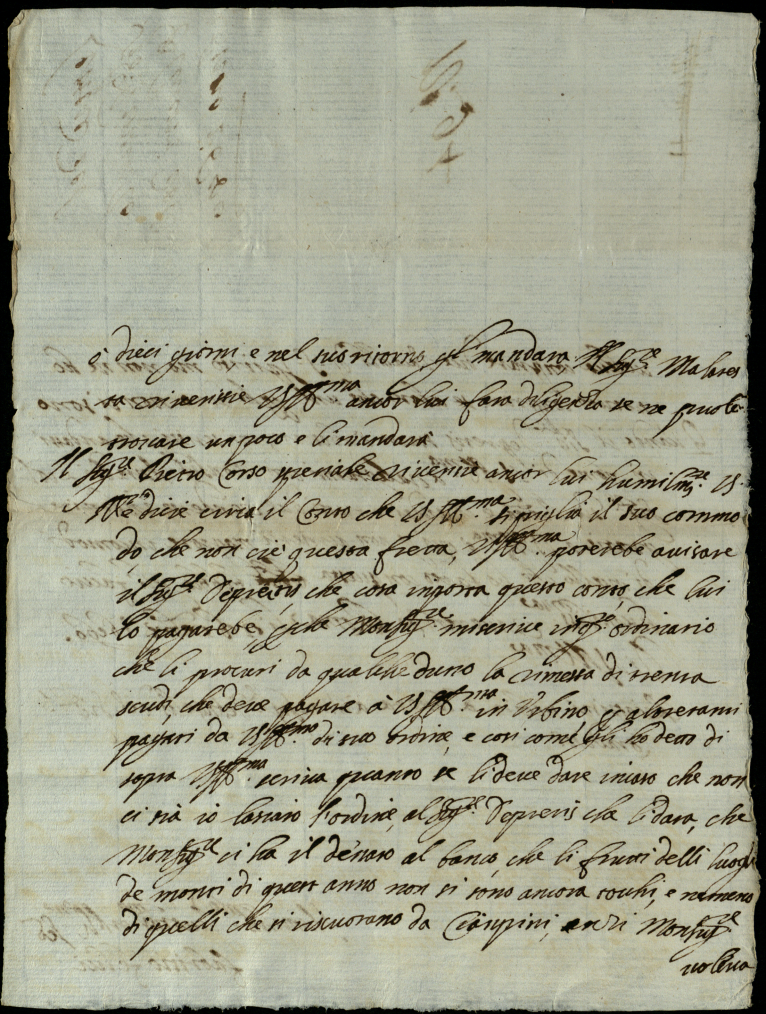 ò dieci giorni e nel suo ritorno gli mandara Il Sig.re Malates
ta riverisce VS Ill.ma ancor lui fara diligenza se ne puole
trovare un poco e li mandarà
Il Sig.re Pietro Corso speciale riverisce ancor lui humilm.te VS
Ill.ma e dice circa il Conto che VS Ill.ma si piglia il suo commo
do che non cie questa fretta, VS Ill.ma poterebe avisare
il Sig.re Depretis che cosa inporta questo conto, che lui
lo pagarebe, perche Monsig.re mi scrive in q.to ordinario
che li procuri da qualche duno la rimessa di trenta
scudi, che deve pagare à VS Ill.ma in Urbino, e altretanti
pagati da VS Ill.ma di suo ordine, e cosi come gli ho detto di
sopra VS Ill.ma scriva quanto se li deve dare incaso che non
ci sia io lasciaro l'ordine, al Sig.re Depretis che li dara, che
Monsig.re ci ha il denaro al banco, che li frutti delli luoghi
de monti di quest anno non si sono ancora tochi, e nemeno
di quelli che si riscuotano da Ciampini, anzi Monsig.re
voleva